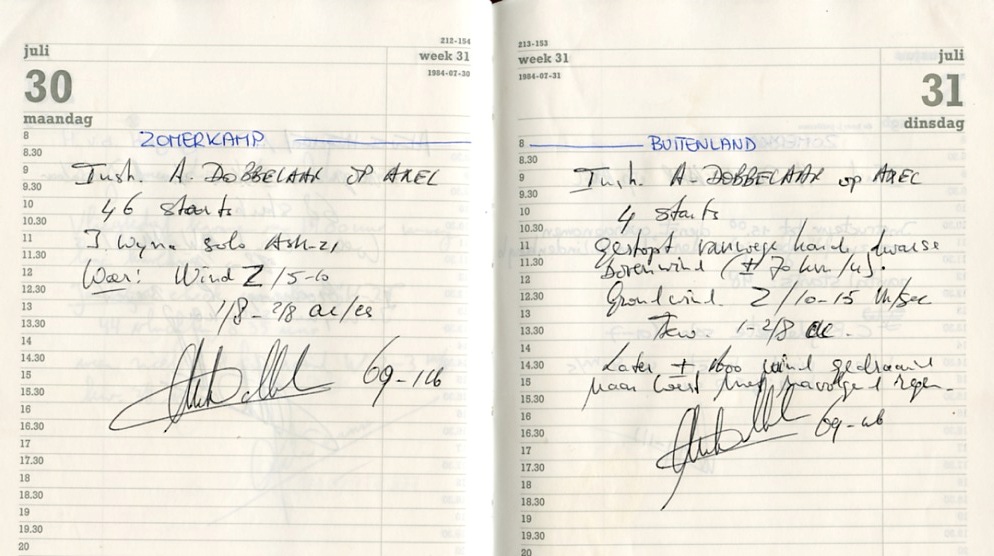 juli
212-154
week 31
30
1984-07-30
maandag
8
ZOMERKAMP
8.30
9
Instr. A. DOBBELAAR OP AXEL
9.30
10
46 starts
10.30
11
J. Wyna solo ASK-21
11.30
12
Weer: Wind Z / 5-10
12.30
13
1/8 - 2/8 ac/cs
13.30
14
14.30
15
15.30
16
16.30
17
17.30
18
18.30
19
19.30
20
213-153
week 31
juli
1984-07-31
31
dinsdag
8
BUITENLAND
8.30
9
Instr. A. DOBBELAAR op AXEL
9.30
10
4 starts
10.30
11
gestopt vanwege harde dwarse
11.30
bovenwind (± 70 km/u).
12
12.30
Grondwind Z / 10-15 m/sec
13
13.30
1-2/8 ac.
14
14.30
Later ± 1600 wind gedraaid
15
naar West met navolgend regen.
15.30
16
16.30
17
17.30
18
18.30
19
19.30
20